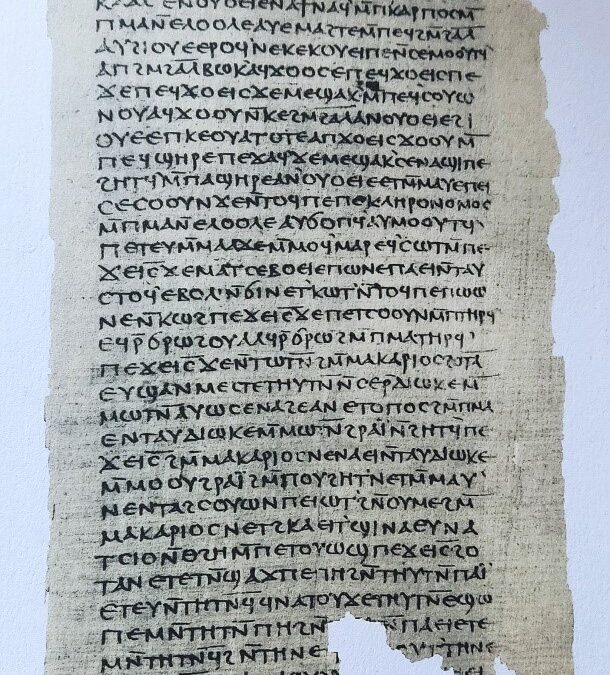 ⲕⲁⲁⲥⲉⲛⲟⲩⲟⲉⲓⲉⲛⲁϯⲛⲁϥⲙ̄ⲡⲕⲁⲣⲡⲟⲥⲙ̄
ⲡⲙⲁⲛ̄ⲉⲗⲟⲟⲗⲉⲁⲩⲉⲙⲁϩⲧⲉⲙ̄ⲡⲉϥϩⲙ̄ϩⲁⲗ
ⲁⲩϩⲓⲟⲩⲉⲉⲣⲟϥⲛⲉⲕⲉⲕⲟⲩⲉⲓⲡⲉⲛ̄ⲥⲉⲙⲟⲟⲩⲧϥ
ⲁⲡϩⲙ̄ϩⲁⲗⲃⲱⲕⲁϥϫⲟⲟⲥⲉⲡⲉϥϫⲟⲉⲓⲥⲡⲉ
ϫⲉⲡⲉϥϫⲟⲉⲓⲥϫⲉⲙⲉϣⲁⲕⲙ̄ⲡⲉϥⲥⲟⲩⲱ
ⲛⲟⲩⲁϥϫⲟⲟⲩⲛ̄ⲕⲉϩⲙ̄ϩⲁⲗⲁⲛⲟⲩⲟⲉⲓⲉϩⲓ
ⲟⲩⲉⲉⲡⲕⲉⲟⲩⲁⲧⲟⲧⲉⲁⲡϫⲟⲉⲓⲥϫⲟⲟⲩⲙ̄
ⲡⲉϥϣⲏⲣⲉⲡⲉϫⲁϥϫⲉⲙⲉϣⲁⲕⲥⲉⲛⲁϣⲓⲡⲉ
ϩⲏⲧϥⲙ̄ⲡⲁϣⲏⲣⲉⲁⲛⲟⲩⲟⲉⲓⲉⲉⲧⲙ̄ⲙⲁⲩⲉⲡⲉⲓ
ⲥⲉⲥⲟⲟⲩⲛϫⲉⲛ̄ⲧⲟϥⲡⲉⲡⲉⲕⲗⲏⲣⲟⲛⲟⲙⲟⲥ
ⲙ̄ⲡⲙⲁⲛ̄ⲉⲗⲟⲟⲗⲉⲁⲩϭⲟⲡϥⲁⲩⲙⲟⲟⲩⲧϥ
ⲡⲉⲧⲉⲩⲙ̄ⲙⲁⲁϫⲉⲙ̄ⲙⲟϥⲙⲁⲣⲉϥⲥⲱⲧⲙ̄ⲡⲉ
ϫⲉⲓ̅ⲥ̅ϫⲉⲙⲁⲧⲥⲉⲃⲟⲉⲓⲉⲡⲱⲛⲉⲡⲁⲉⲓⲛ̄ⲧⲁⲩ
ⲥⲧⲟϥⲉⲃⲟⲗⲛ̄ϭⲓⲛⲉⲧⲕⲱⲧⲛ̄ⲧⲟϥⲡⲉⲡⲱⲱ
ⲛⲉⲛ̄ⲕⲱϩⲡⲉϫⲉⲓ̅ⲥ̅ϫⲉⲡⲉⲧⲥⲟⲟⲩⲛⲙ̄ⲡⲧⲏⲣϥ
ⲉϥⲣ̄ϭⲣⲱϩⲟⲩⲁⲁϥⲣ̄ϭⲣⲱϩⲙ̄ⲡⲙⲁⲧⲏⲣϥ
ⲡⲉϫⲉⲓ̅ⲥ̅ϫⲉⲛ̄ⲧⲱⲧⲛ̄ϩⲙ̄ⲙⲁⲕⲁⲣⲓⲟⲥϩⲟⲧⲁ
ⲉⲩϣⲁⲛⲙⲉⲥⲧⲉⲧⲏⲩⲧⲛ̄ⲛ̄ⲥⲉⲣ̄ⲇⲓⲱⲕⲉⲙ̄
ⲙⲱⲧⲛ̄ⲁⲩⲱⲥⲉⲛⲁϩⲉⲁⲛⲉⲧⲟⲡⲟⲥϩⲙ̄ⲡⲙⲁ
ⲉⲛⲧⲁⲩⲇⲓⲱⲕⲉⲙ̄ⲙⲱⲧⲛ̄ϩⲣⲁⲓ̈ⲛ̄ϩⲏⲧϥⲡⲉ
ϫⲉⲓ̅ⲥ̅ϩⲙ̄ⲙⲁⲕⲁⲣⲓⲟⲥⲛⲉⲛⲁⲉⲓⲛ̄ⲧⲁⲩⲇⲓⲱⲕⲉ
ⲙ̄ⲙⲟⲟⲩϩⲣⲁⲓ̈ϩⲙ̄ⲡⲟⲩϩⲏⲧⲛⲉⲧⲙ̄ⲙⲁⲩ
ⲛⲉⲛⲧⲁϩⲥⲟⲩⲱⲛⲡⲉⲓⲱⲧϩⲛ̄ⲟⲩⲙⲉϩⲙ̄
ⲙⲁⲕⲁⲣⲓⲟⲥⲛⲉⲧϩⲕⲁⲉⲓⲧϣⲓⲛⲁⲉⲩⲛⲁ
ⲧⲥⲓⲟⲛ̄ⲑϩⲏⲙ̄ⲡⲉⲧⲟⲩⲱϣⲡⲉϫⲉⲓ̅ⲥ̅ϩⲟ
ⲧⲁⲛⲉⲧⲉⲧⲛ̄ϣⲁϫⲡⲉⲡⲏϩⲛ̄ⲧⲏⲩⲧⲛ̄ⲡⲁⲓ̈
ⲉⲧⲉⲩⲛ̄ⲧⲏⲧⲛ̄ϥϥⲛⲁⲧⲟⲩϫⲉⲧⲏⲩⲧⲛ̄ⲉϣⲱ
ⲡⲉⲙⲛ̄ⲧⲏⲧⲛ̄ⲡⲏϩⲛ̄ ⲛ̄ⲡⲁⲉⲓⲉⲧⲉ
ⲙⲛ̄ⲧⲏⲧⲛ̄ϥϩⲛ̄ⲧⲏⲛⲉ ⲟⲩⲧⲧⲏⲛⲉ